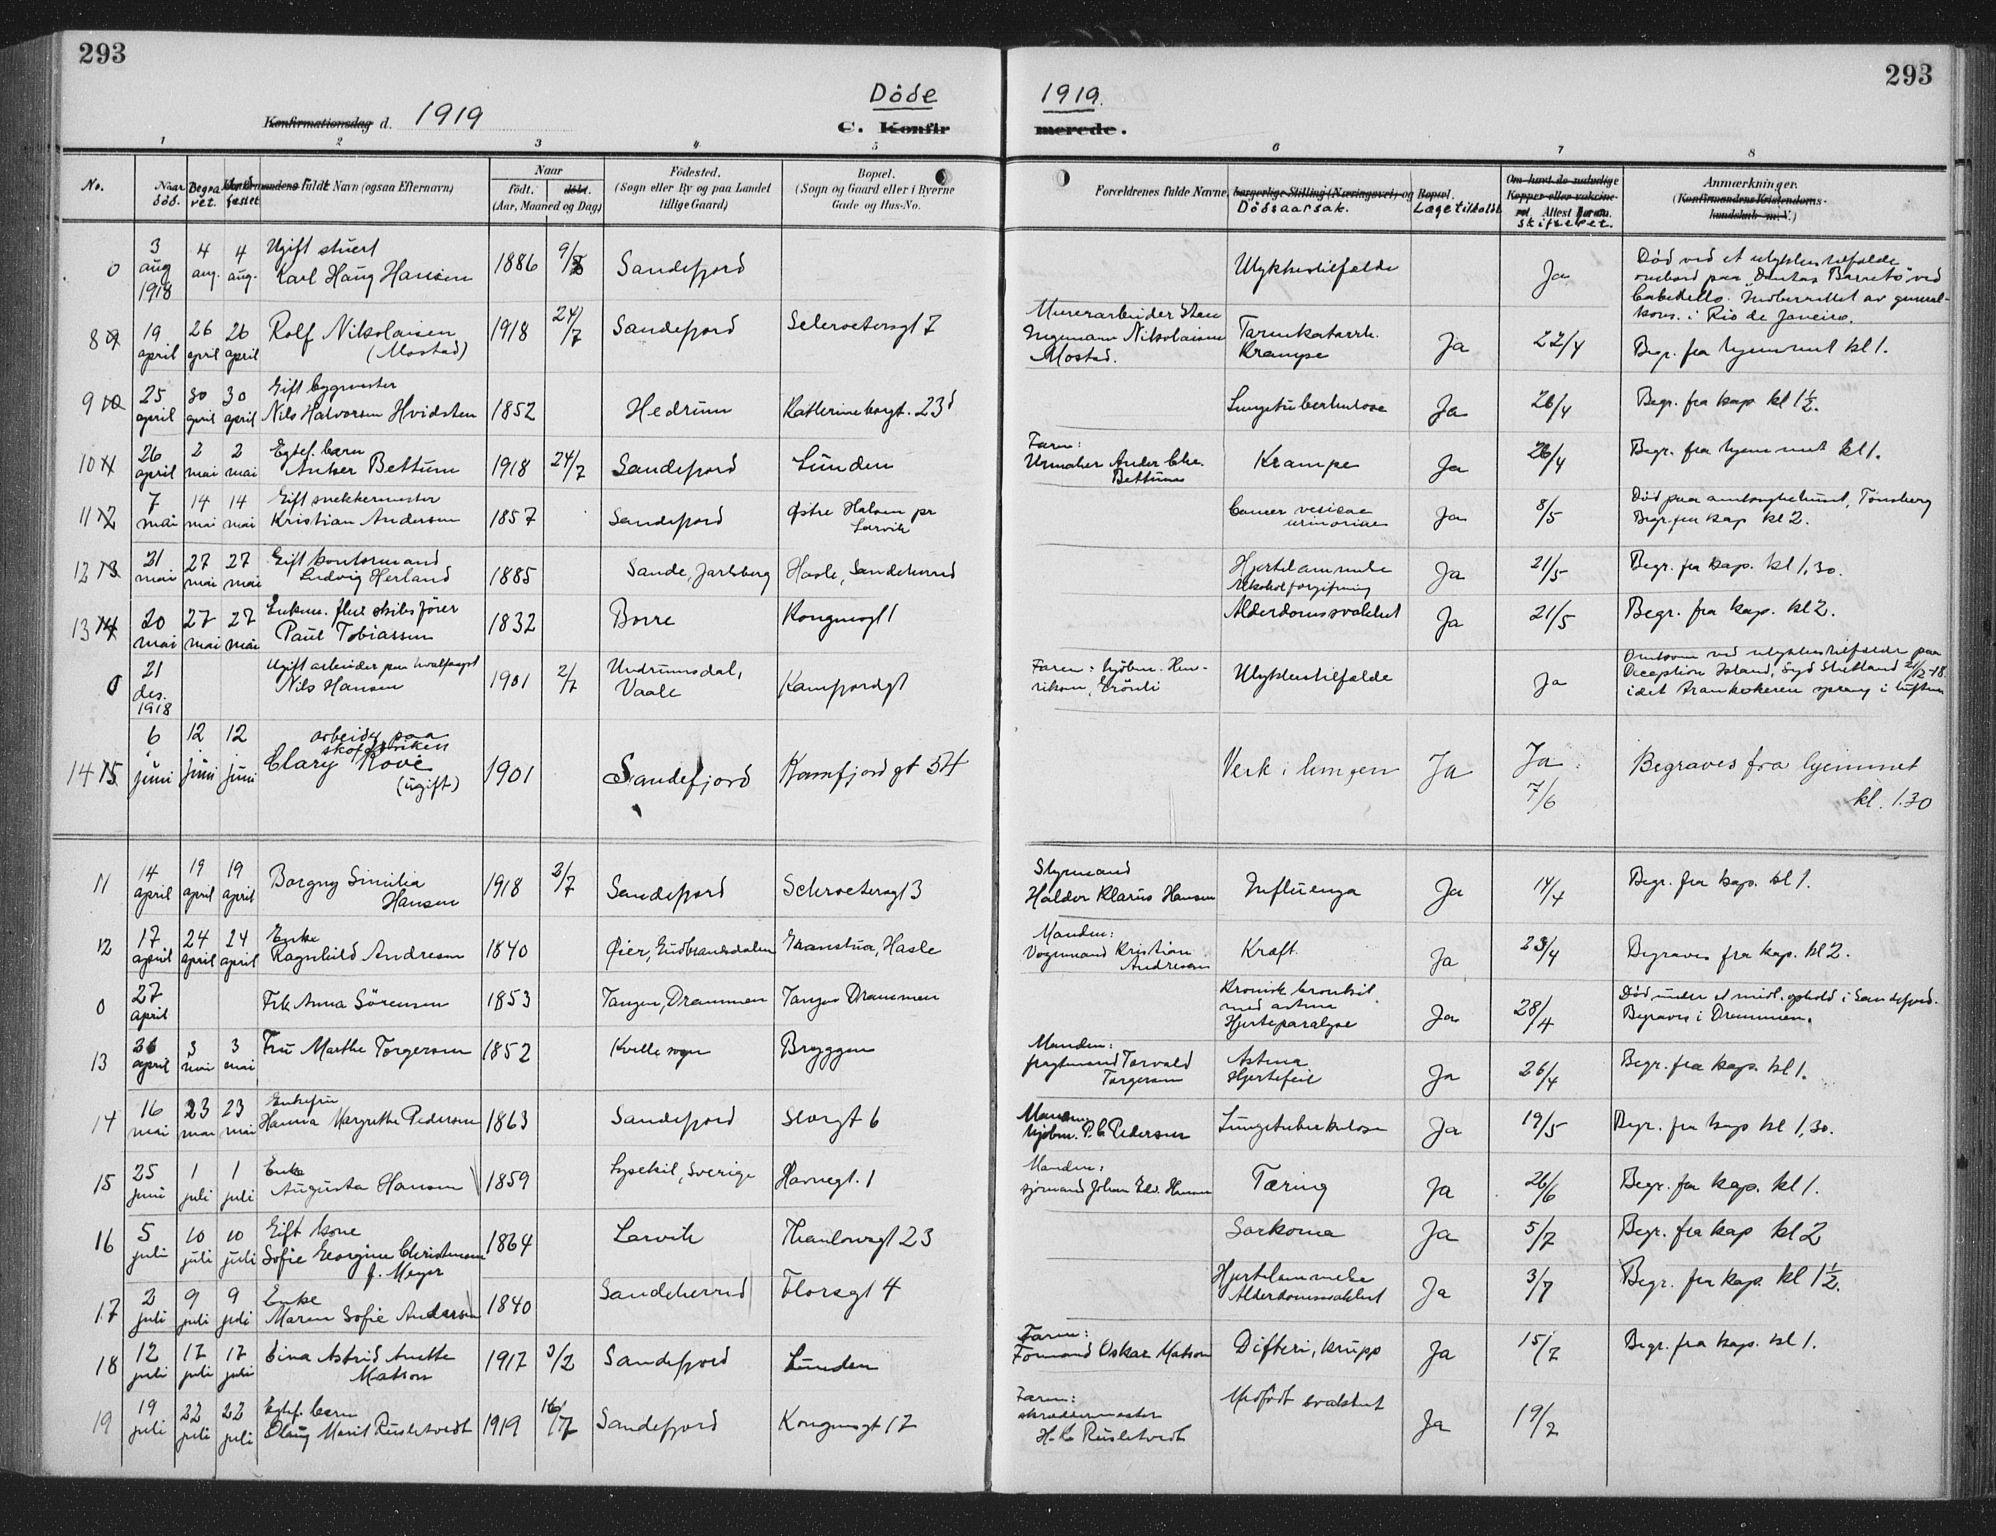 293
293
Døde 1919.
Konfirmationsdag d. 1919
C. Konfirmerede.
1 2 3 4 5 6 7 8
No.
Naar død.
Begravet.
Jordfestet
Konfirmandens fulde Navn (ogsaa Efternavn)
Naar
født. døbt.
(Aar, Maaned og Dag)
Fødested.
(Sogn eller By og paa Landet tillige Gaard)
Bopæl.
(Sogn og Gaard eller i Byerne Gade og Hus-No.
Forældrenes fulde Navne, borgerlige Stilling (Næringsvei) og Bopæl.
Dødsaarsak.
Læge tilkaldt
Om havt de naturlige Kopper eller vakcineret. Attest
Skifteret.
Anmærkninger.
(Konfirmandens Kristendomskundskab m. V.)
0 3 aug 1918 4 aug. 4 aug. Ugift stuert Karl Haug Hansen 1886 9/ Sandefjord Ulykkestilfælde Ja Død ved et ulykkestilfælde ombord paa "Dantas Barreto" ved Cabedello. Indberettet av general-kons. i Rio de Janeiro.
8 9 19 april 26 april 26 april Rolf Nikolaisen (Mostad) 1918 24/7 Sandefjord Schrøetersgt 7 Murerarbeider Sten Ingemann Nikolaisen Mostad. Tarmkatarrh. Krampe Ja 22/4 Begr. fra hjemmet kl 1.
9 10 25 april 30 april 30 april Gift bygmester Nils Halvorsen Hvidsten 1852 Hedrum Katherineborgt. 23 Lungetuberkulose Ja 26/4 Begr. fra kap. kl 1½.
10 11 26 april 2 mai 2 mai Egtef. barn Anker Bettum 1918 24/7 Sandefjord Lunden Faren: Urmaker Ander Chr. Bettum Krampe Ja 26/4 Begr. fra hjemmet kl 1.
11 12 7 mai 14 mai 14 mai Gift snekkermester Kristian Andersen 1857 Sandefjord Østre Halsen pr Larvik Cancer vesicae urinariae Ja 8/5 Død paa amtssykehuset, Tønsberg Begr. fra kap. kl 2.
12 13 21 mai 27 mai 27 mai Gift kontormand Ludvig Herland 1885 Sande, Jarlsberg Hasle, Sandeherred Hjertelammelse Alkoholforgiftning Ja 21/5 Begr. fra kap. kl 1,30.
13 14 20 mai 27 mai 27 mai Enkem. fhv skibsfører Paul Tobiassen 1832 Borre Kongensgt 1 Alderdomssvakhet Ja 21/5 Begr. fra kap. kl 2.
0 21 des. 1918 Ugift arbeider paa hvalfangst Nils Hansen 1901 2/7 Undrumsdal, Vaale Kamfjordgt Ulykkestilfælde Ja Omkom ved ulykkestilfælde paa Deception Island, Syd Shetland 21/12-18. idet trankokeren sprang i luften
14 15 6 juni 12 juni 12 juni arbeider paa skofabriken Clary Rove (ugift) 1901 Sandefjord Kamfjordgt 54 Verk i lungen Ja Ja 7/6 Begraves fra hjemmet kl. 1.30
11 14 april 19 april 19 april Borgny Similia Hansen 1918 2/7 Sandefjord Schrøetersgt 3 Styrmand Haldor Klarius Hansen Influenza Ja 14/4 Begr. fra kap. kl 1.
12 17 april 24 april 24 april Enke Ragnhild Andresen 1840 Øier, Gudbrandsdalen Granstua, Hasle Manden: Vognmand Kristian Andresen Kræft Ja 23/4 Begraves fra kap. kl 2.
0 27 april Frk Anna Sørensen 1853 Tangen, Drammen Tangen Drammen Kronisk bronkit med astma Hjerteparalyse Ja 28/4 Død under et midl. ophold i Sandefjord. Begraves i Drammen.
13 26 april 3 mai 3 mai Fru Marthe Torgersen 1852 Kville sogn Bryggen Manden: fragtmand Torvald Torgersen Astma Hjertefeil Ja 26/4 Begr. fra kap. kl 1.
14 16 mai 23 mai 23 mai Enkefru Hanna Margrethe Pedersen 1863 Sandefjord Storgt 6 Manden: kjøbm. P. C. Pedersen Lungetuberkulose Ja 19/5 Begr. fra kap kl 1,30.
15 25 juni 1 juli 1 juli Enke Augusta Hansen 1859 Lysekil, Sverige Havnegt. 1 Manden: sjømand Johan Edv. Hansen Tæring Ja 26/6 Begr. fra kap. kl 1.
16 5 juli 10 juli 10 juli Gift kone Sofie Georgine Christensen f. Meyer 1864 Larvik Thaulowsgt 23 Sarkoma Ja 5/7 Begr. fra kap kl 2
17 2 juli 9 juli 9 juli Enke Maren Sofie Andersen 1840 Sandeherred Florsgt 4 Hjertelammelse Alderdomssvakhet Ja 3/7 Begr. fra kap. kl 1½.
18 12 juli 17 juli 17 juli Eina Astrid Anette Matson 1917 3/2 Sandefjord Lunden Faren: Formand Oskar Matson Difteri, krupp Ja 15/7 Begr. fra kap. kl 1.
19 19 juli 22 juli 22 juli Egtef. barn Olaug Marit Rusletvedt 1919 16/7 Sandefjord Kongensgt 17 Faren: skræddermester H. C. Rusletvedt Medfødt svakhet Ja 19/7